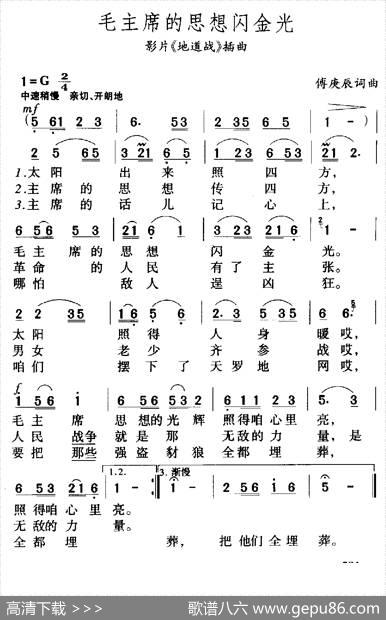 毛主席的思想闪金光
影片《地道战》插曲
1=G 2/4
中速稍慢 亲切、开朗地
傅庚辰词曲
mf
(5 61 2 3 | 6· 53 | 2 35 6 5 | 1 -) |
2 5 65 | 3 21 6 5 | 1 23 6 53 | 2 - |
1.太阳 出来 照四方,
2.主席的 思想 传四方,
3.主席的 话儿 记心上,
6 56 5 | 3 21 6 | 1 23 5 6 | 1 - |
毛主席的思想闪金光。
革命的人民有了主张。
哪怕敌人逞凶狂。
2 2 35 | 3 12 3 | 2· 3 5 1 | 6· 6· |
太阳照得人身暖哎,
男女老少齐参战哎,
咱们摆下了天罗地网哎,
f
毛主席思想的光辉照得咱心里亮,
人民战争就是那无敌的力量,是
要把那些强盗豺狼全都埋葬,
1.2.
3.渐慢
照得咱心里亮。
无敌的力量。
全都埋葬,把他们全埋葬。
高清下载 >>>
歌谱八六 www.gepu86.com